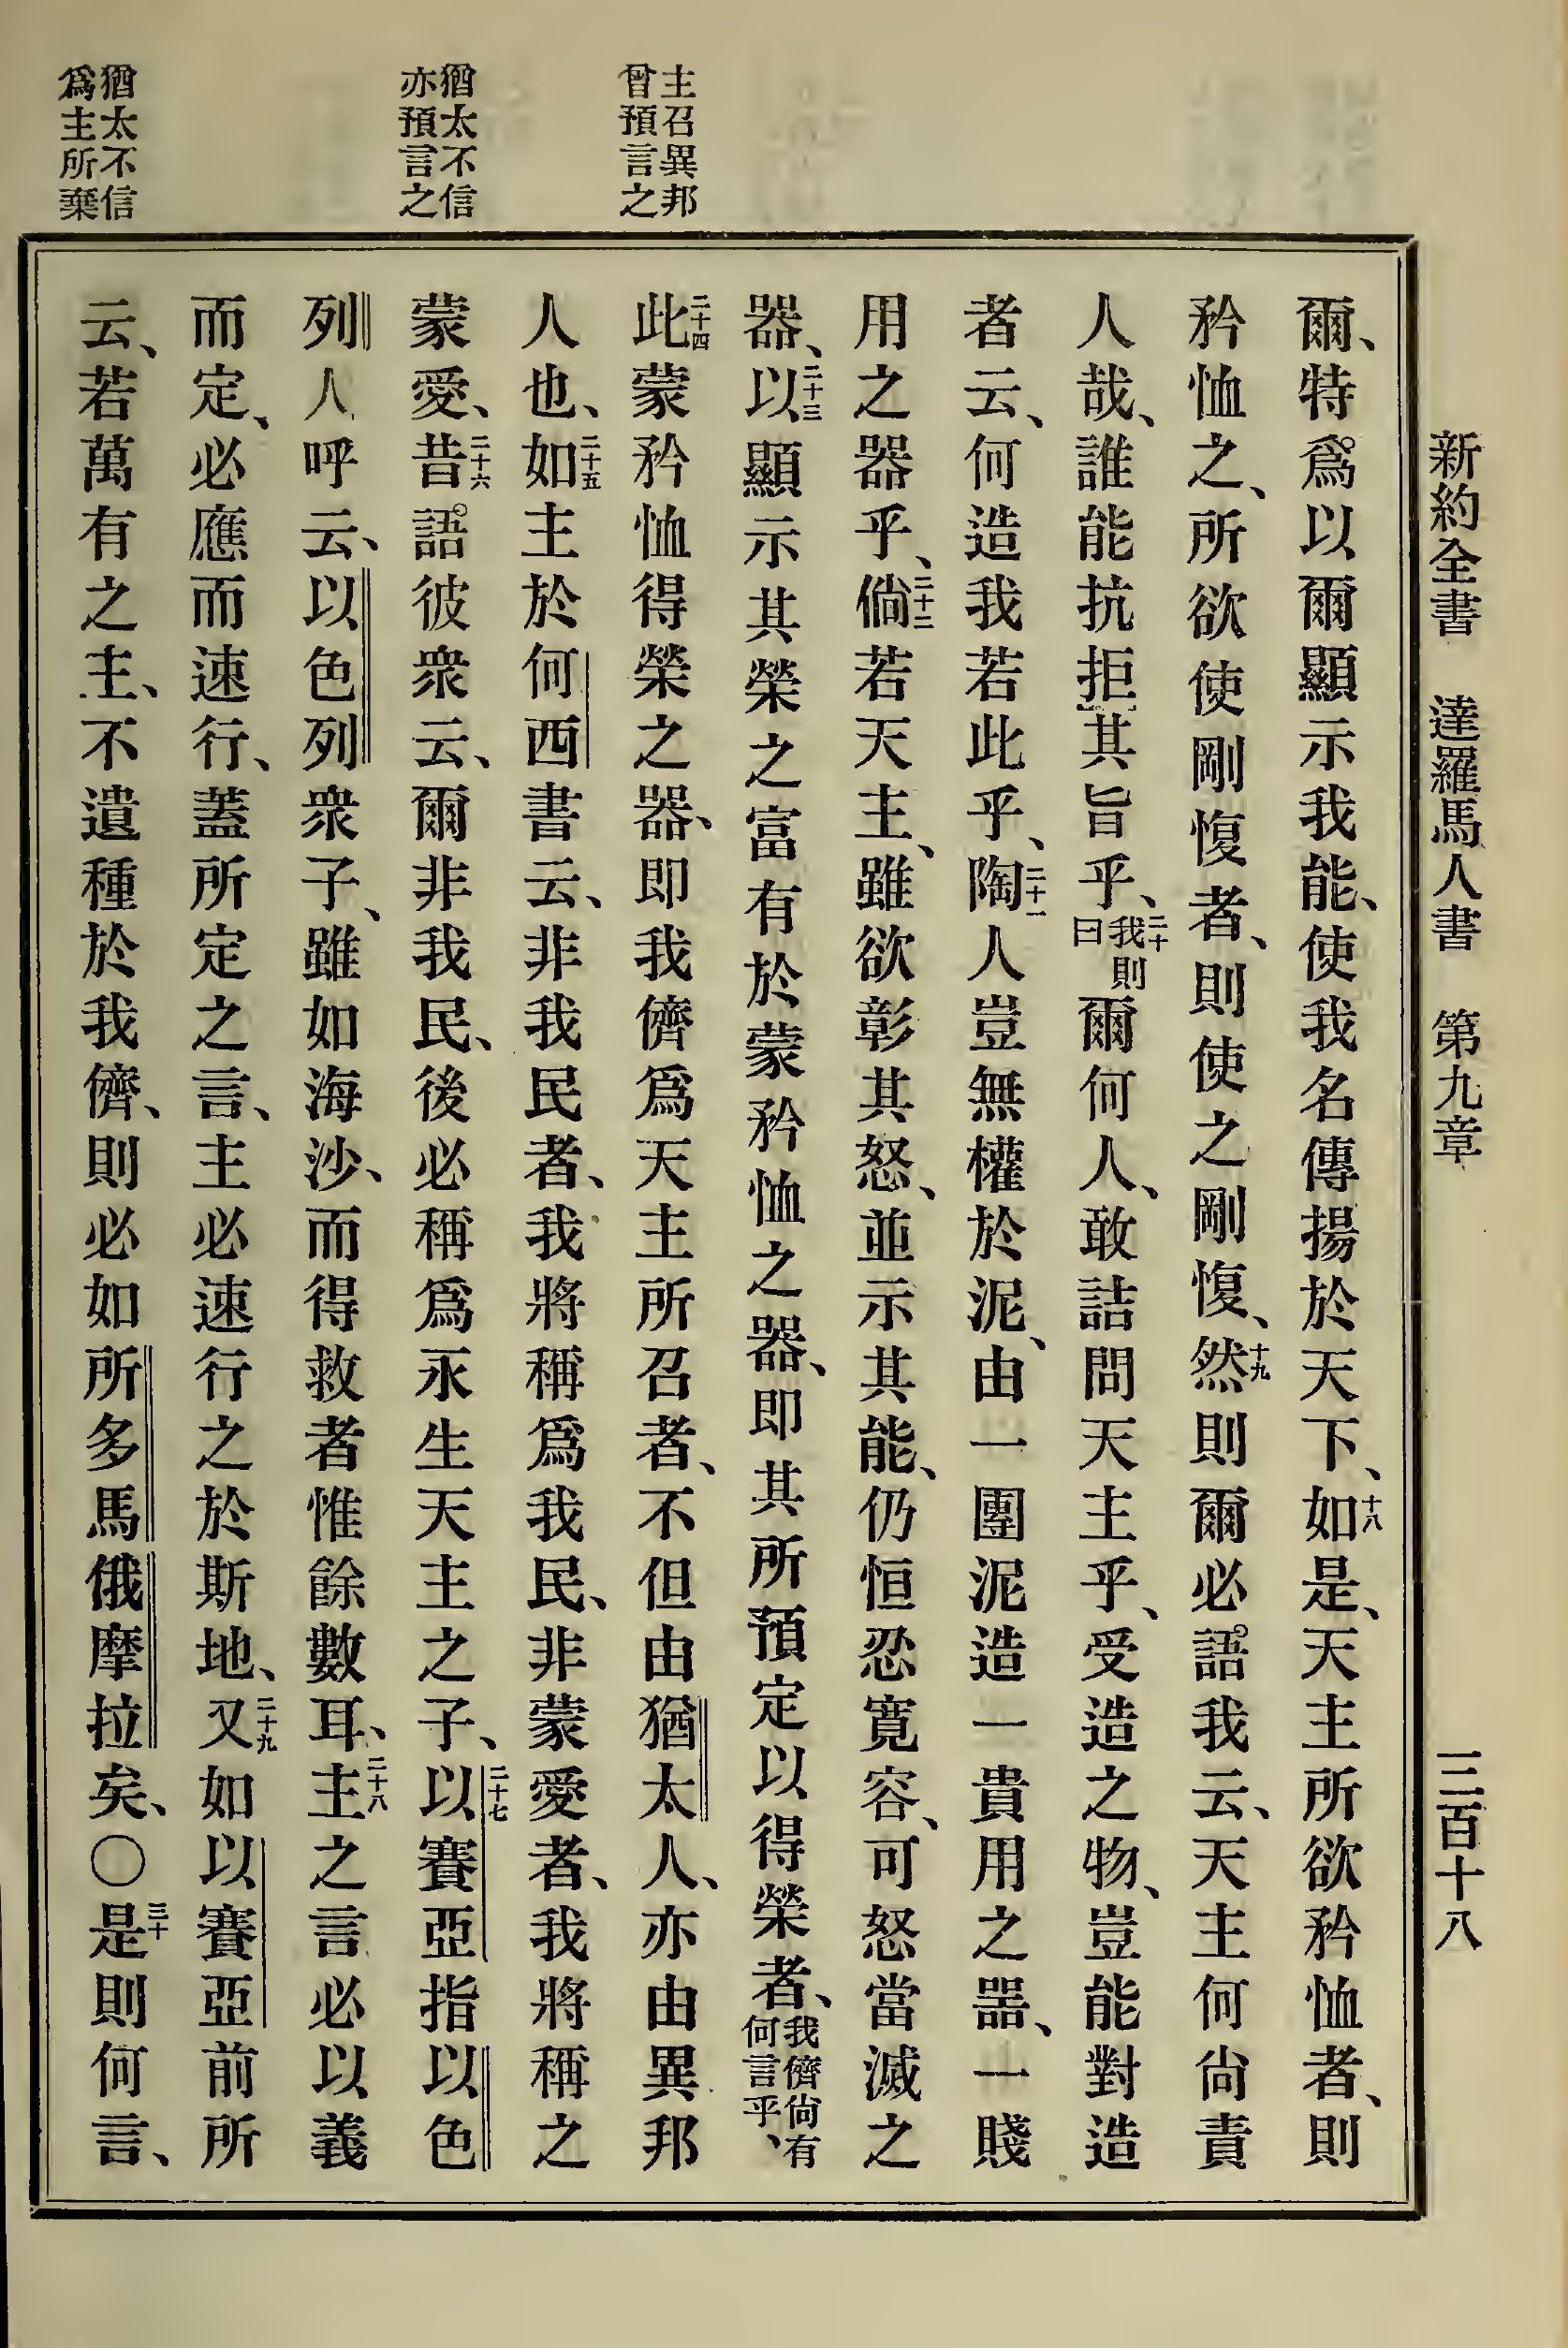 新約全書 達羅馬人書 第九章 三百十八
主召異邦
曾預言之
猶太不信
亦預言之
猶太不信
爲主所棄
爾、特爲以爾顯示我能、使我名傳揚於天下、十八如是、天主所欲矜恤者、則
矜恤之、所欲使剛愎者、則使之剛愎、十九然則爾必語我云、天主何尙責
人哉、誰能抗拒其旨乎、二十我則曰爾何人、敢詰問天主乎、受造之物、豈能對造
者云、何造我若此乎、二十一陶人豈無權於泥、由一團泥造一貴用之噐、一賤
用之器乎、二十二倘若天主、雖欲彰其怒、並示其能、仍恒忍寬容、可怒當滅之
器、二十三以顯示其榮之富有於蒙矜恤之器、即其所預定以得榮者、我儕尙有何言乎、
二十四此蒙矜恤得榮之器、即我儕爲天主所召者、不但由猶太人、亦由異邦
人也、二十五如主於何西書云、非我民者、我將稱爲我民、非蒙愛者、我將稱之
蒙愛、二十六昔語彼衆云、爾非我民、後必稱爲永生天主之子、二十七以賽亞指以色
列人呼云、以色列衆子、雖如海沙、而得救者惟餘數耳、二十八主之言必以義
而定、必應而速行、蓋所定之言、主必速行之於斯地、二十九又如以賽亞前所
云、若萬有之主、不遺種於我儕、則必如所多馬俄摩拉矣、〇三十是則何言、